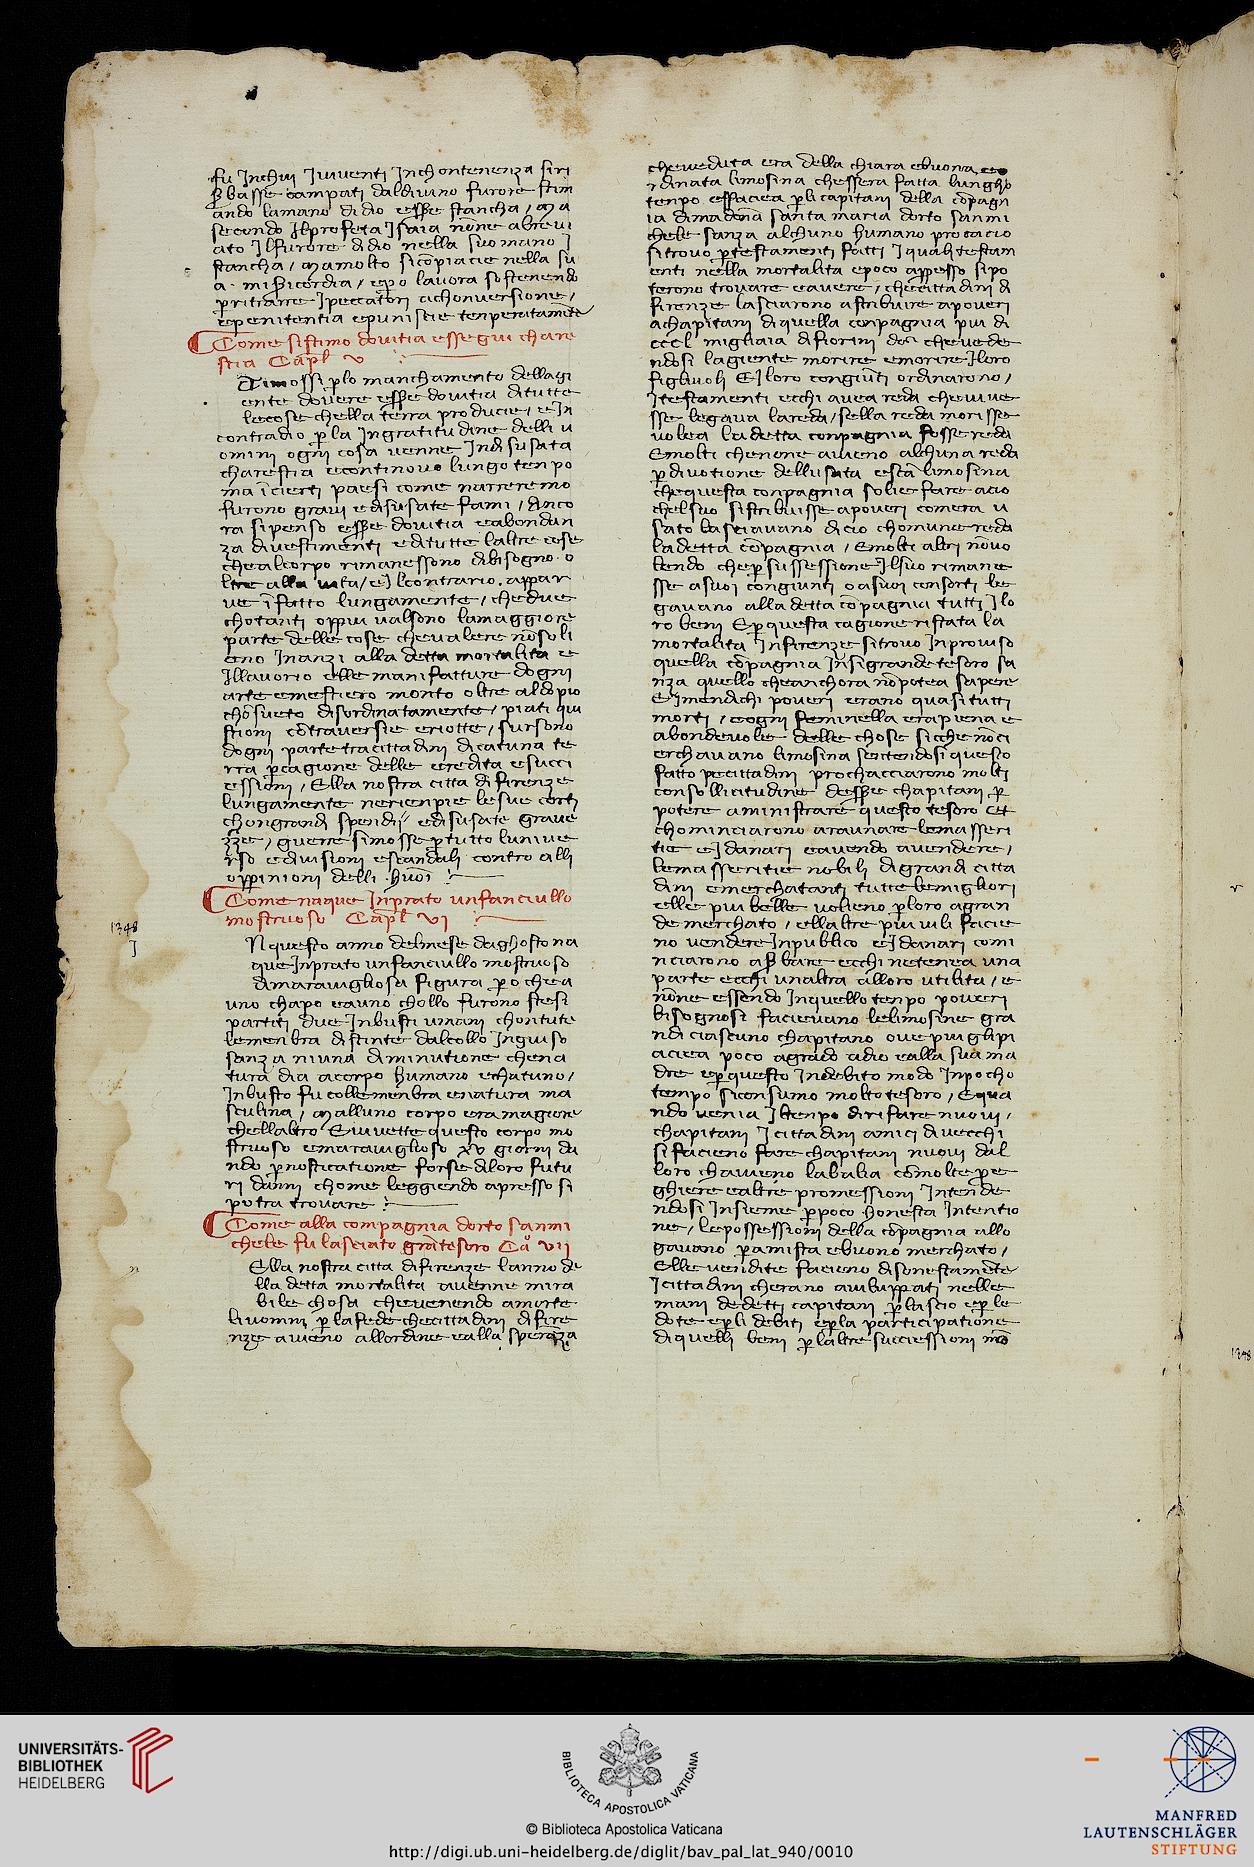 fu inchui i viventi inchontenenza si ri
s̷basse campati dal divino furore stim
ando la mano di dio esse̅ stancha / ma
secondo il profeta isaia no̅ne abrevi
ato il furore di dio nella suo mano i
stancha / ma molto si co̅piacie nella su
a misericordia / e p̱o lavora sostenendo
p̱ ritrarre i peccatori a chonversione /
e penitentia e puniscie tenperatame̅te
Come si stimo dovitia e ssegui chare
stia Cap̅l v
Stimossi p̱ lo manchamento della gi
ente dovere esse̅ dovitia di tutte
le cose che lla terra producie / e in
contradio p̱ la ingratitudine delli u
omini ogni cosa venne in disusata
charestia e continovo lungo tenpo
ma i̅ cierti paesi come narreremo
furono gravi e disusate fami / anco
ra si penso esse̅ dovitia e abondan
za di vestimenti e di tutte l altre cose
che al corpo rimanessono di bisogno o
ltre alla vita / e il contrario appar
ve i̅ fatto lungamente / che due
chotanti o ppiu valsono la maggiore
parte delle cose che valere no̅ soli
eno inanzi alla detta mortalita e
il lavorio e lle manifatture d ogni
arte e mestiero monto oltre al dopio
cho̅sueto disordinatamente / piati qui
stioni co̅traversie e riotte / sursono
d ogni parte tra cittadini di catuna te
rra p̱ cagione delle eredita e succi
essioni / E lla nostra citta di firenze
lungamente ne rienpie le sue corti
chon grandi spendii e disusate grave
zze / guerre si mosse p̱ tutto l unive
rso e divisioni e scandali contro alli
oppinioni delli huoi
Come naque in prato un fanciullo
mostruoso Cap̅l vi
1348
IN questo anno del mese d aghosto na
que in prato un fanciullo mostruoso
di maravigliosa figura p̱o che a
uno chapo e a uno chollo furono stesi
partiti due inbusti umani chon tute
le menbra distinte dal collo in giuso
sanza niuna diminutione che na
tura dia a corpo humano e chatuno /
inbusto fu colle menbra e natura ma
sculina / ma ll uno corpo era magiore
che ll altro E vivette questo corpo mo
struoso e maraviglioso xv giorni da
ndo p̱nosticatione forse di loro futu
ri danni chome leggiendo apresso si
potra trovare
Come alla compagnia d orto san mi
chele fu lasciato gra̅ tesoro Ca̅ vii
E lla nostra citta di firenze l anno de
lla detta mortalita avenne mira
bile chosa che venendo a morte
li uomini p̱ la fede che cittadini di fire
nze avieno all ordine e alla spera̅za
che veduta era della chiara e buona e o
rdinata limosina che ss era fatta lungho
tenpo e ffaciea p̱ li capitani della co̅pagn
ia di mado̅na santa maria d orto san mi
chele sanza alchuno humano procacio
si trovo p̱ testamenti fatti i quali testam
enti nella mortalita e poco appesso si po
terono trovare e avere / che cittadini di
firenze lasciarono a stribuire a poveri
a chapitani di quella conpagnia piu di
cccl migliaia di fiorini d oro che vede
ndosi la giente morire e morire i loro
figliuoli E i loro congiu̅ti ordinarono /
i testamenti e cchi avea reda che vive
sse legava la reda / se lla reda morisse
volea la detta conpagnia fosse reda
E molti che none avieno alchuna reda
p̱ divotione dell usata e sta̅ limosina
che questa conpagnia solie fare acio
che l suo si stribuisse a poveri com era u
sato lasciavano di cio chomune reda
la detta co̅pagnia / E molti altri no̅ vo
lendo che p̱ su ssessione il suo rimane
sse a suoi congiunti o a suoi consorti le
gavano alla detta co̅pagnia tutti i lo
ro beni E p̱ questa cagione ristata la
mortalita in firenze si trovo inproviso
quella co̅pagnia in si grande tesoro sa
nza quello che anchora no̅ potea sapere
E i mendichi poveri erano quasi tutti
morti / e ogni feminella era piena e
abondevole delle chose sicche no̅ ci
erchavano limosina sentendosi questo
fatto pe cittadini prochacciarono molti
con sollicitudine d esse̅ chapitani p̱
potere aministrare questo tesoro et
chominciarono a raunare le masseri
tie e i danari e avendo a vendere /
le masseritie nobili di grandi citta
dini e merchatanti tutte le migliori
e lle piu belle volieno p̱ loro a gran
de merchato / e ll altre piu vili facie
no vendere in publico e i danari comi
nciarono a s̷bare e cchi ne tenea una
parte e cchi un altra a lloro utilita / e
no̅ne essendo in quello tenpo poveri
bisognosi facievano le limosine gra
ndi ciascuno chapitano ove piu gli pi
aciea poco a grado a dio e alla sua ma
dre e p̱ questo indebito modo in pocho
tempo si consumo molto tesoro / E qua
ndo venia il tenpo di rifare nuovi /
chapitani i cittadini amici di vecchi
si facieno fare chapitani nuovi dal
loro ch avieno la balia co̅ molte pre
ghiere e altre promessioni intende
ndosi insieme p̱ poco honesta intentio
ne / le possessioni della co̅pagnia allo
gavano p̱ amista e buono merchato /
E lle vendite facieno disonestame̅te
i cittadini ch erano aviluppati nelle
mani de detti capitani p̱ lascio e p̱ le
dote e p̱ li debiti e p̱ la participatione
di quelli beni p̱ l altre succiessioni mo̅
1348
UNIVERSITÄTS-
BIBLIOTHEK
HEIDELBERG
BIBLIOTECA APOSTOLICA VATICANA
© Biblioteca Apostolica Vaticana
http://digi.ub.uni-heidelberg.de/diglit/bav_pal_lat_940/0010
MANFRED
LAUTENSCHLÄGER
STIFTUNG